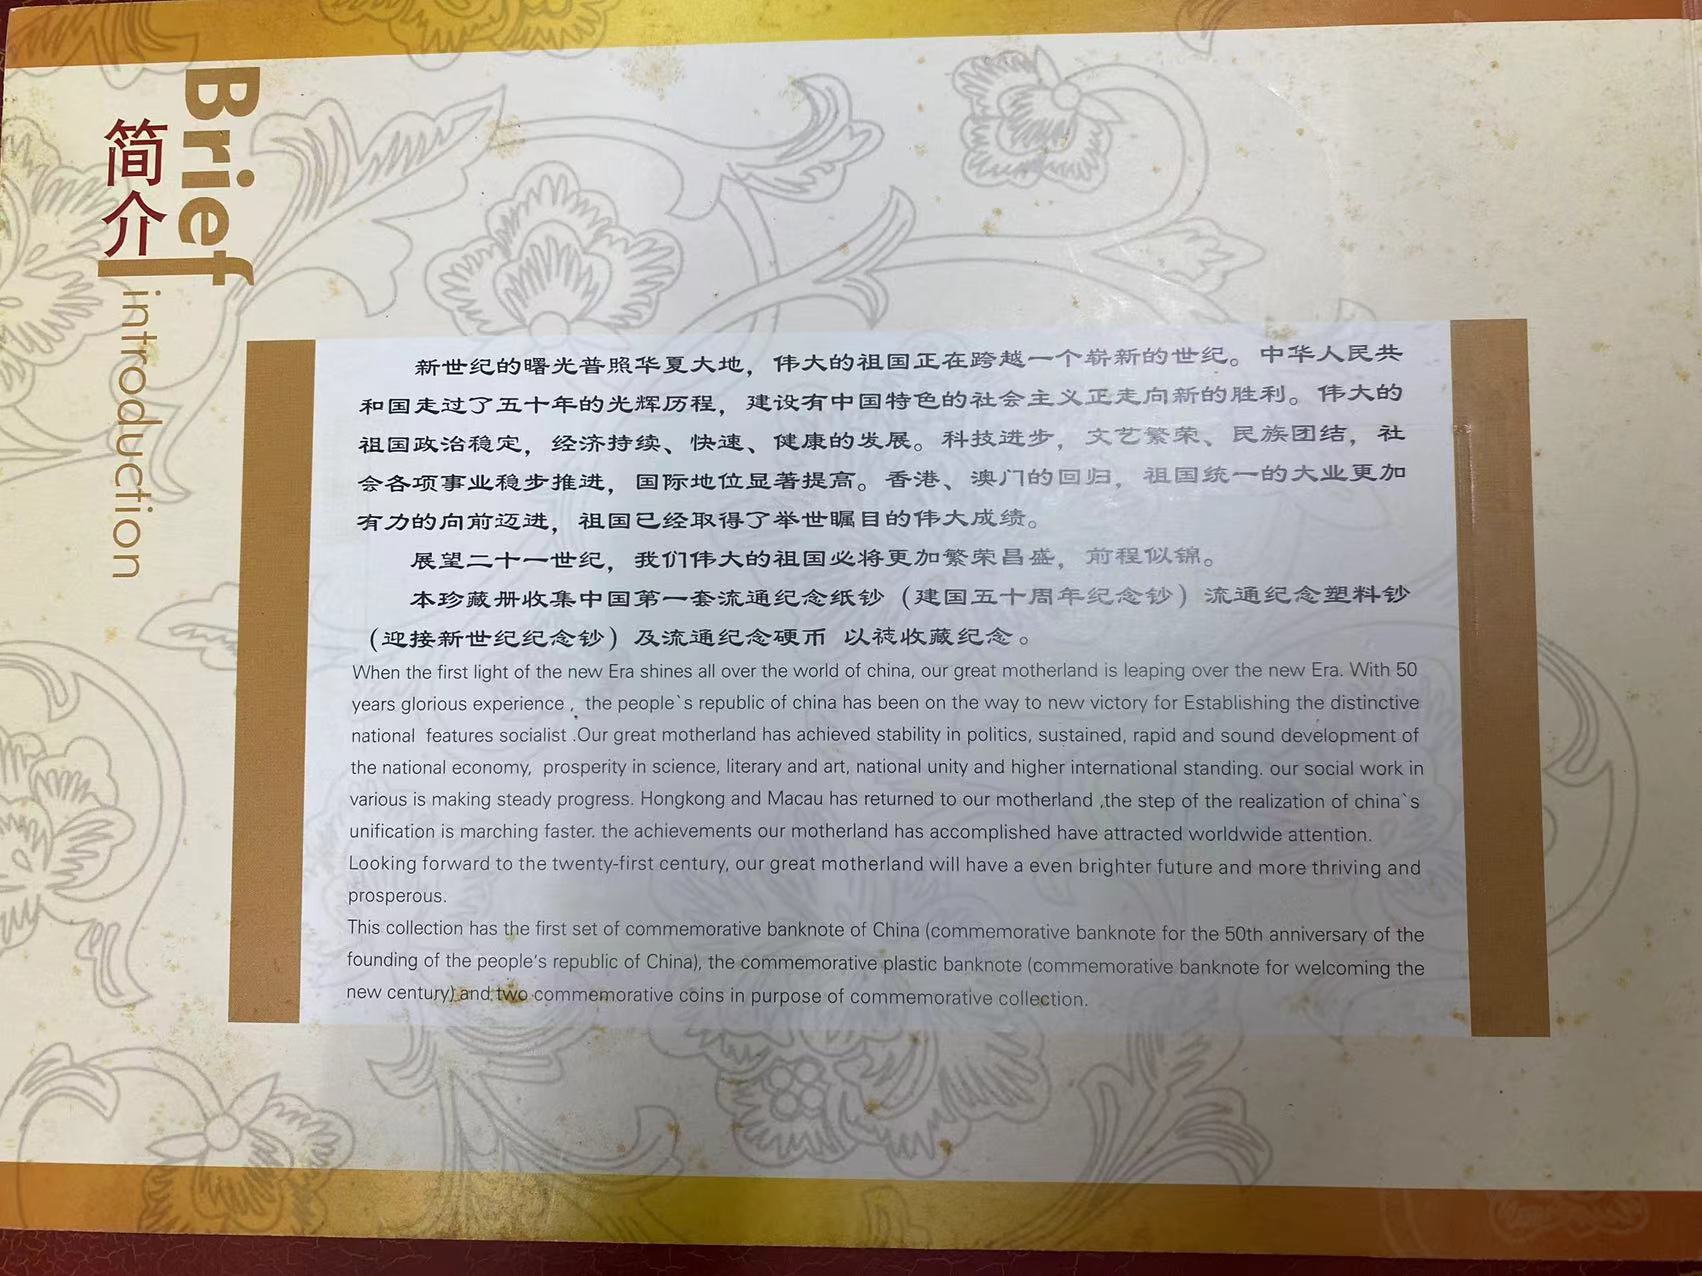 Brief
简介
introduction
新世纪的曙光普照华夏大地，伟大的祖国正在跨越一个崭新的世纪。中华人民共
和国走过了五十年的光辉历程，建设有中国特色的社会主义正走向新的胜利。伟大的
祖国政治稳定，经济持续、快速、健康的发展。科技进步，文艺繁荣、民族团结，社
会各项事业稳步推进，国际地位显著提高。香港、澳门的回归，祖国统一的大业更加
有力的向前迈进，祖国已经取得了举世瞩目的伟大成绩。
展望二十一世纪，我们伟大的祖国必将更加繁荣昌盛，前程似锦。
本珍藏册收集中国第一套流通纪念纸钞（建国五十周年纪念钞）流通纪念塑料钞
（迎接新世纪纪念钞）及流通纪念硬币 以收藏纪念。
When the first light of the new Era shines all over the world of china, our great motherland is leaping over the new Era. With 50
years glorious experience , the people`s republic of china has been on the way to new victory for Establishing the distinctive
national features socialist .Our great motherland has achieved stability in politics, sustained, rapid and sound development of
the national economy, prosperity in science, literary and art, national unity and higher international standing. our social work in
various is making steady progress. Hongkong and Macau has returned to our motherland ,the step of the realization of china`s
unification is marching faster. the achievements our motherland has accomplished have attracted worldwide attention.
Looking forward to the twenty-first century, our great motherland will have a even brighter future and more thriving and
prosperous.
This collection has the first set of commemorative banknote of China (commemorative banknote for the 50th anniversary of the
founding of the people's republic of China), the commemorative plastic banknote (commemorative banknote for welcoming the
new century) and two commemorative coins in purpose of commemorative collection.